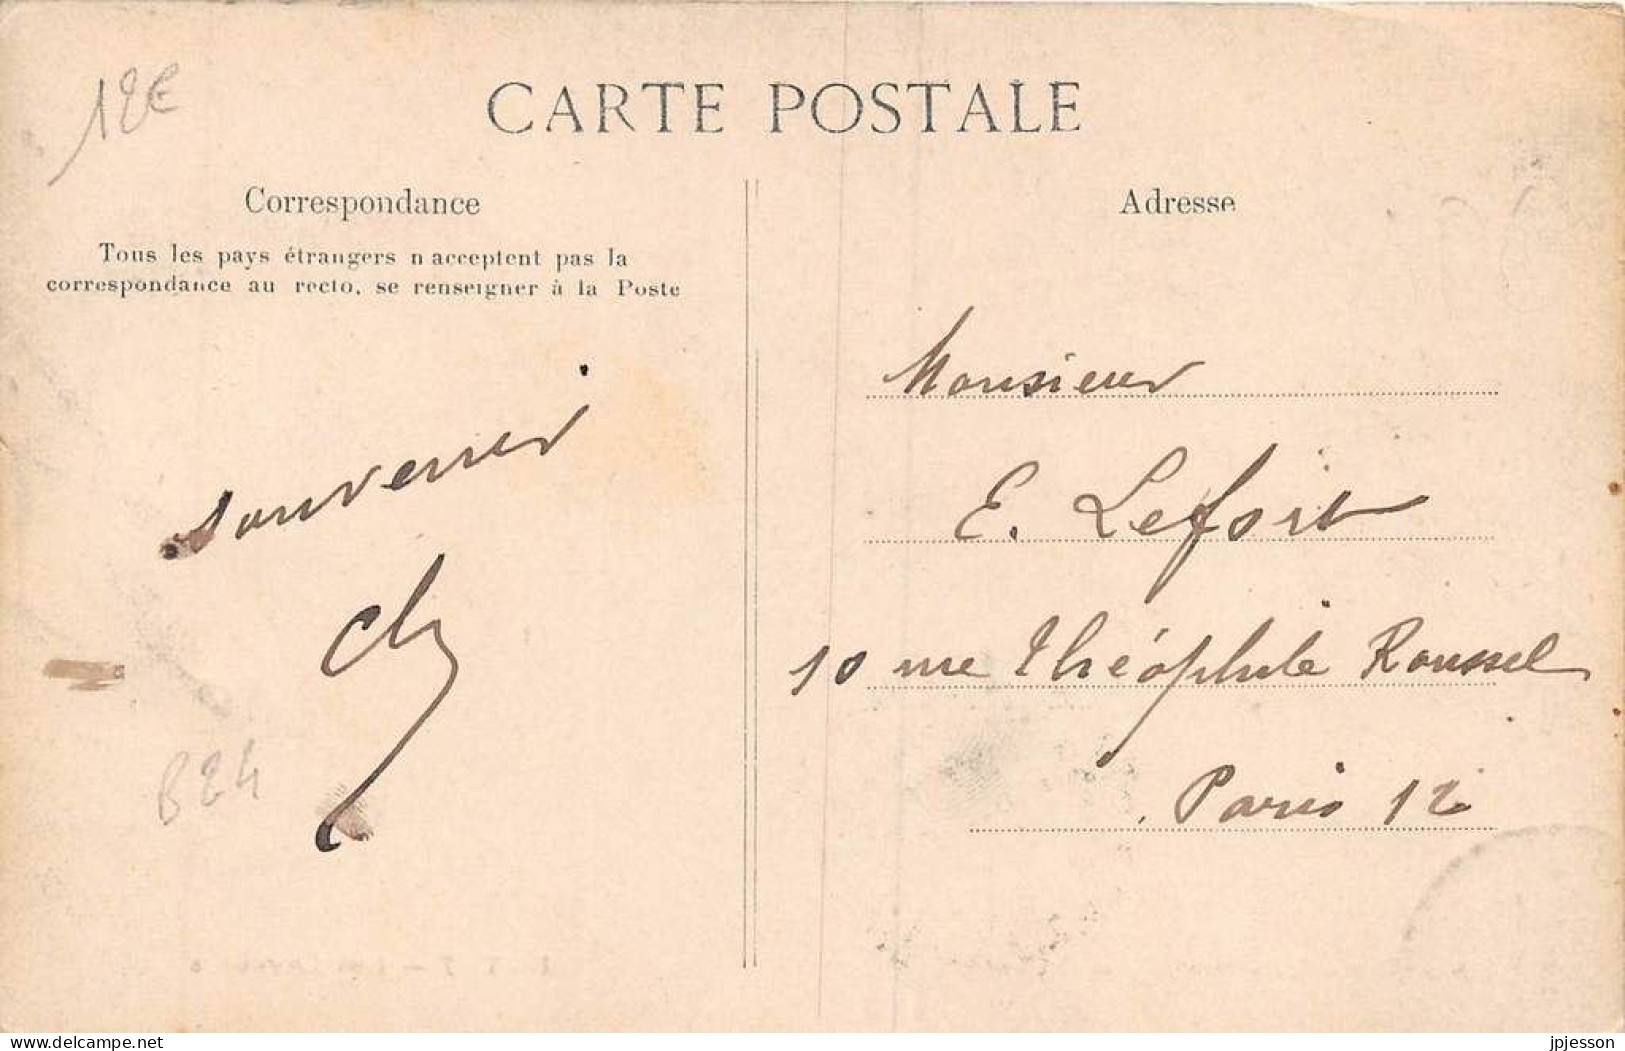 12€
CARTE POSTALE
Correspondance
Tous les pays étrangers n'acceptent pas la
correspondance au recto, se renseigner à la Poste
souvenir
B24
Adresse
Monsieur
E. Lefoit
10 rue Théophile Roussel
Paris 12
delcampe.net
jpjesson